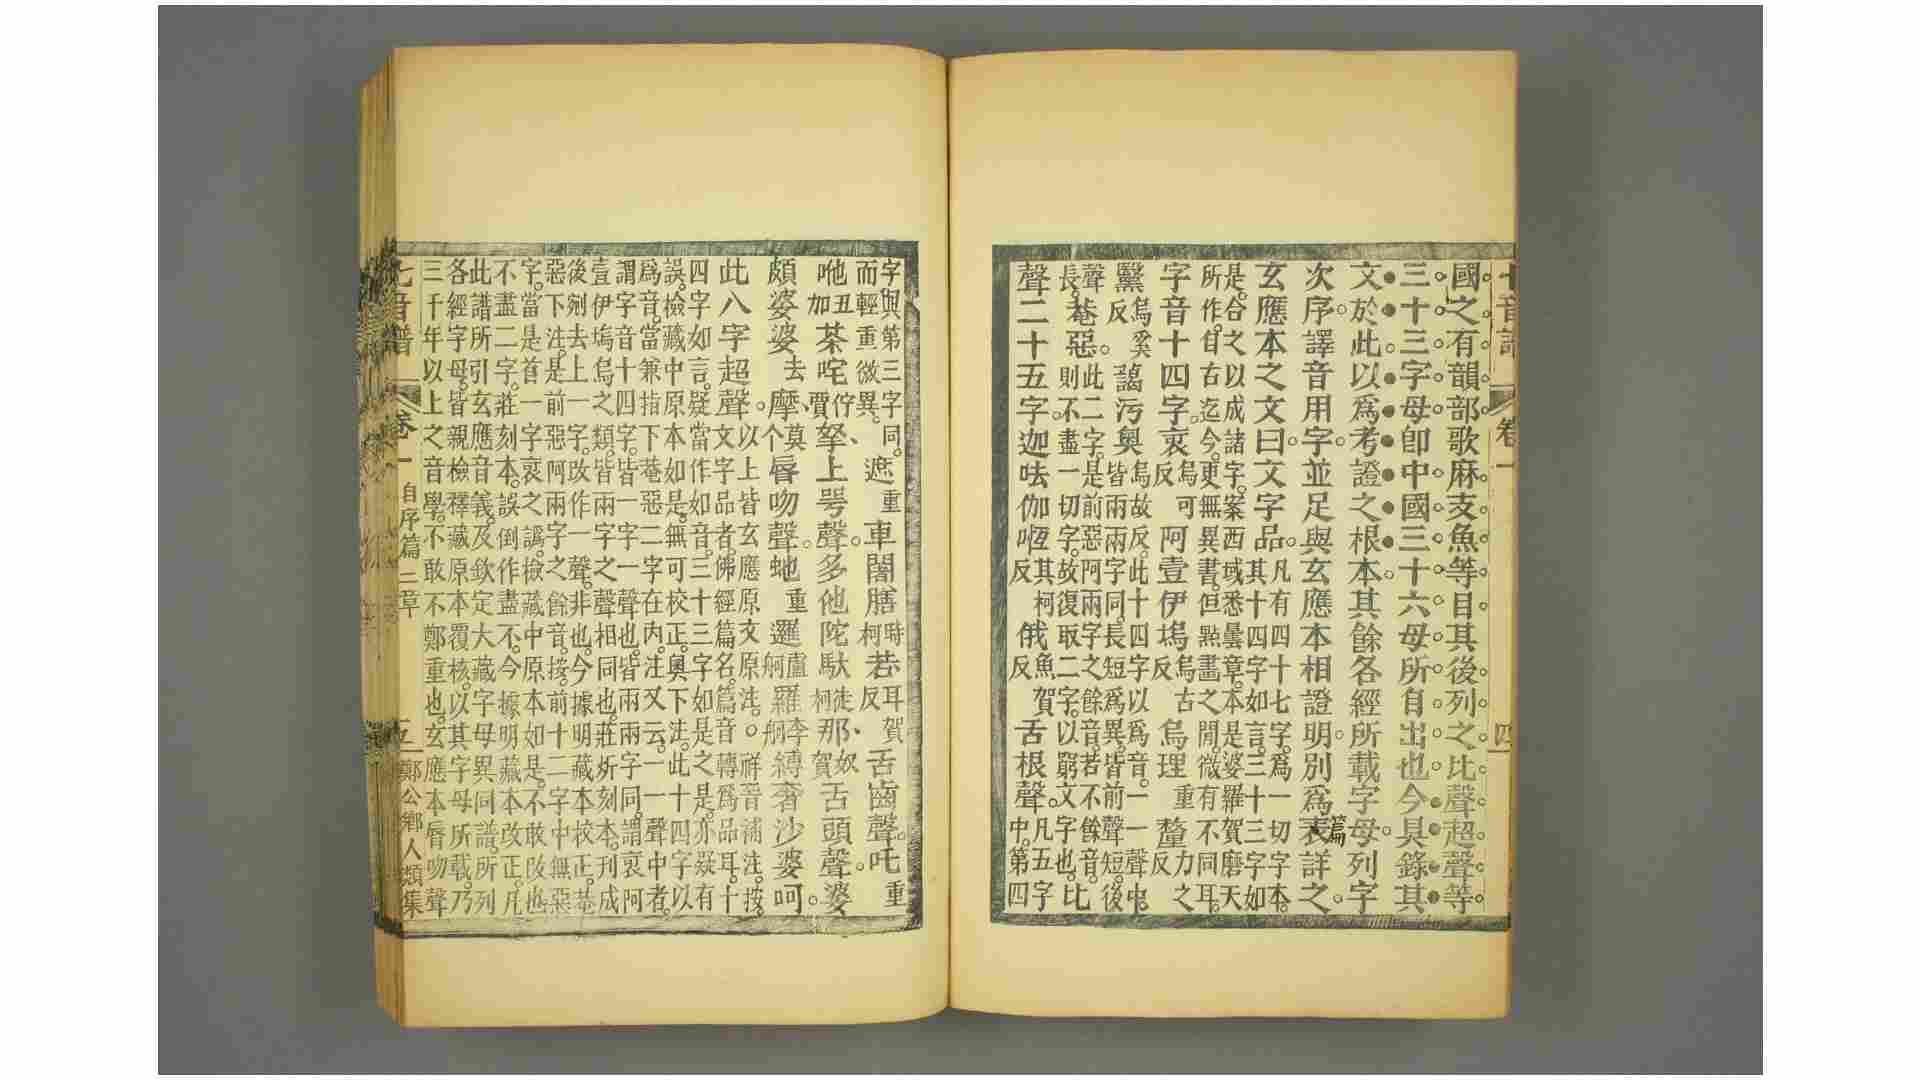 七音譜 卷一 四
國之有韻部歌麻支魚等目其後列之比聲超聲等
三十三字母卽中國三十六母所自出也今具錄其
文於此以爲考證之根本其餘各經所載字母列字
次序譯音用字並足與玄應本相證明別爲表篇詳之
玄應本之文曰文字品。凡有四十七字。爲一切字本。
其十四字如言。三十三字如
是。合之以成諸字。案西域悉曇章。本是婆羅賀磨天
所作。自右迄今。更無異書。但點畫之閒。微有不同耳。
字音十四字。哀烏可反阿壹伊塢烏古反烏理重釐力之反
黳烏奚反藹污奧烏故反。此十四字以爲音。一一聲中。
皆兩兩字同。長短爲異。皆前聲短。後
聲長。菴惡。此二字。是前惡阿兩字之餘音。若不餘音。
則不盡一切字。故復取二字。以窮文字也。比
聲二十五字。迦呿伽㖵其柯反俄魚賀反舌根聲。凡五字
中。第四
字與第三字同。
而輕重微異。遮重車闍膳時柯若耳賀反舌齒聲。吒重
咃丑加荼咤佇賈拏上咢聲。多他陀馱徒柯那奴賀舌頭聲。婆
頗婆婆去摩莫个脣吻聲。虵重邏盧舸羅李舸縛奢沙婆呵
此八字超聲。以上皆玄應原文原注。祥晉補注。按
文字品者。佛經篇名。篇音轉爲品耳。十
四字如言。疑當作如音。三十三字如是之是。亦疑有
誤。檢藏中原本如是。無可校正。奧下注。此十四字以
爲音。當兼指下菴惡二字在內。注又云。一一聲中者。
謂字音十四字。皆一字一聲也。皆兩兩字同。謂哀阿
壹伊塢烏之類。皆兩字之聲相同也。莊炘刻本。刊成
後剜去上一字。改作一聲。非也。今據明藏本校正。菴
惡下注。是前惡阿兩字之餘音。按前十二字中無惡
字。當是首一字哀之譌。檢藏中原本如是。不敢改也。
不盡二字。莊刻本。誤倒作盡不。今據明藏本改正。凡
此譜所引玄應音義。及欽定大藏字母異同譜。所列
各經字母。皆親檢釋藏原本覆核。以其字母所載。乃
三千年以上之音學。不敢不鄭重也。玄應本脣吻聲
七音譜 卷一 自序篇三章 五 鄭公鄉人類集